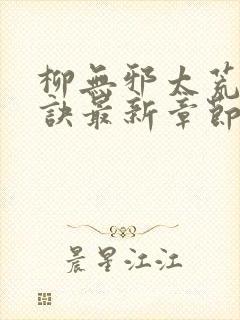 柳無邪太荒
訣最新章節
晨星江江